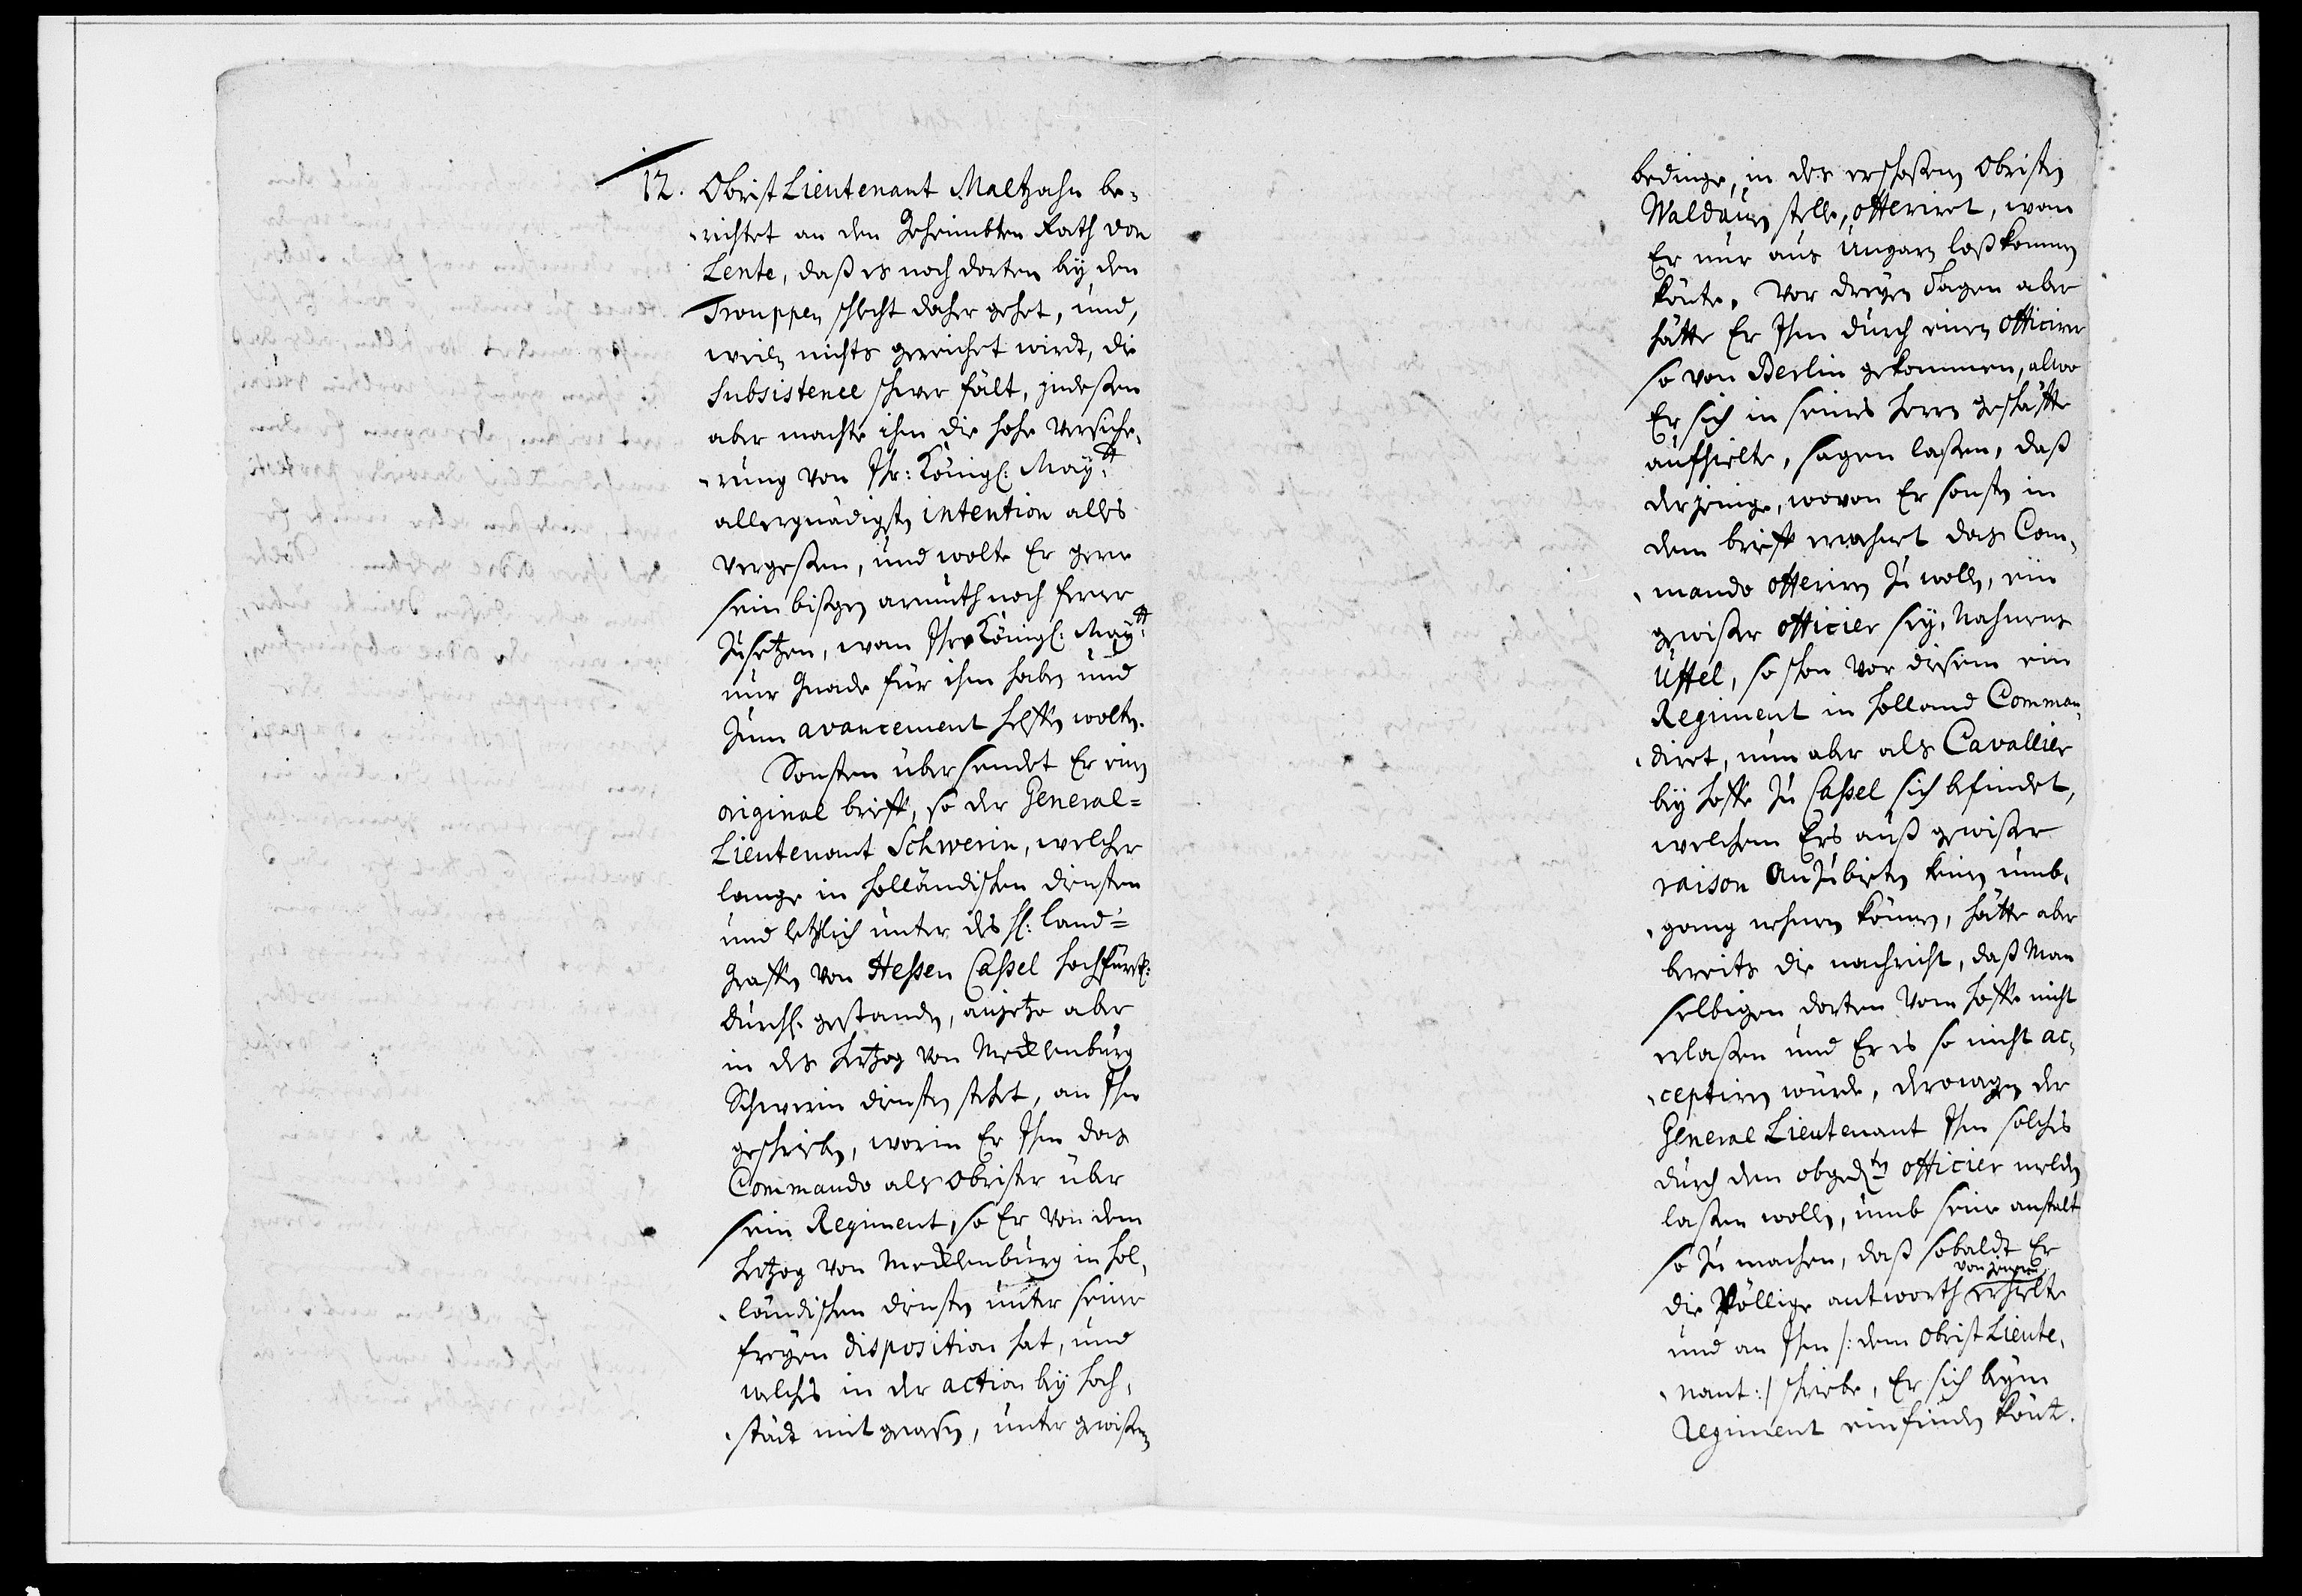 12. Obrist Lieutenant Maltzahn be-
richtet an den Geheimbten Rath von
Lente, daß es noch dorten bey den
Trouppen schlecht daher gehet, und,
weiln nichts gereichet wirdt, die
Subsistence schwer fält, indeßen
aber machte ihm die hohe Versiche-
rung von Ihr: Königl: Maytt
allergnädigsten intention alles
vergeßen, und wolte Er gern
sein bißgen armuth noch ferner
zusetzen, wan Ihro Königl: Maytt
nur Gnade für ihm haben und
zum avancement helffen wolten.
Sonsten übersendet Er einen
original brieff, so der General-
Lieutenant Schwerin, welcher
lange in holländischen diensten
und letzlich unter des H: Land-
Graffen von Heßen Caßel Hochfürstl:
Durchl. gestanden, anjetzo aber
in des Hertzog von Mecklenburg
Schwerin diensten stehet, an Ihm
geschrieben, worin Er Ihm das
Commando als Obrister über
sein Regiment, so Er von dem
Hertzog von Mecklenburg in hol-
ländischen diensten unter seiner
freyen disposition hat, und
welches in der action bey Hoch-
städt mit gewesen, unter gewißen
bedinge, in des erschoßenen Obristen
Waldauen stelle, offeriret, wan
Er nur aus Ungarn loßkommen
könte. Vor dreyen Tagen aber
hätte Er Ihm durch einen Officirer
so von Berlin gekommen, alwo
Er sich in seines Herrn geschäffte
aufhielte, sagen laßen, daß
derjenige, wovon Er sonsten in
dem brieff erwehnet das Com-
mando offeriren zu wollen, ein
gewißer officier sey, Nahmens
Uffel, so schon vor diesem ein
Regiment in Holland Comman-
diret, nun aber als Cavallier
bey Hoffe zu Caßel sich befindet,
welchem Ers auß gewißer
raison anzubieten keinen umb-
gang nehmen können, hätte aber
bereits die nachricht, daß Man
selbigen dorten vom Hoffe nicht
erlaßen und Er es so nicht ac-
ceptiren würde, derowegen der
General Lieutenant Ihm solches
durch dem obgedten officier melden
laßen wollen, umb seine anstalt
so zu machen, daß sobaldt Er
von jenem
die Völlige antworth erhielte
und an Ihm /: dem Obrist Lieute-
nant :/ schriebe, Er sich beym
Regiment einfinden könt.